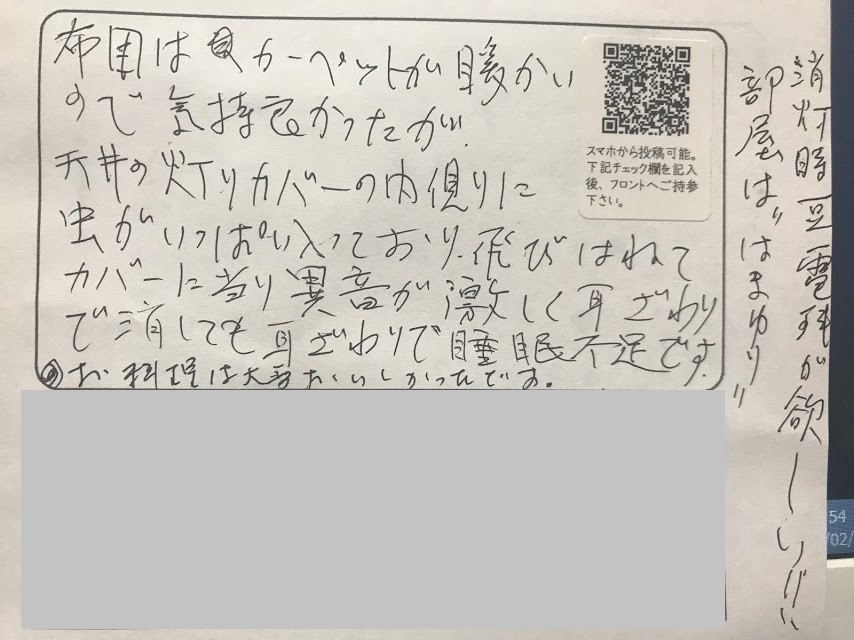 布団は カーペットが暖かい
ので気持良かったが、
天井の灯りカバーの内側りに
虫がいっぱい入っており、飛びはねて
カバーに当り異音が激しく耳ざわり
で消しても耳ざわりで睡眠不足です。
お料理は大変おいしかったです。
スマホから投稿可能。
下記チェック欄を記入
後、フロントへご持参
下さい。
消灯時豆電球が欲しい
部屋は"はまゆり"
54
/02/